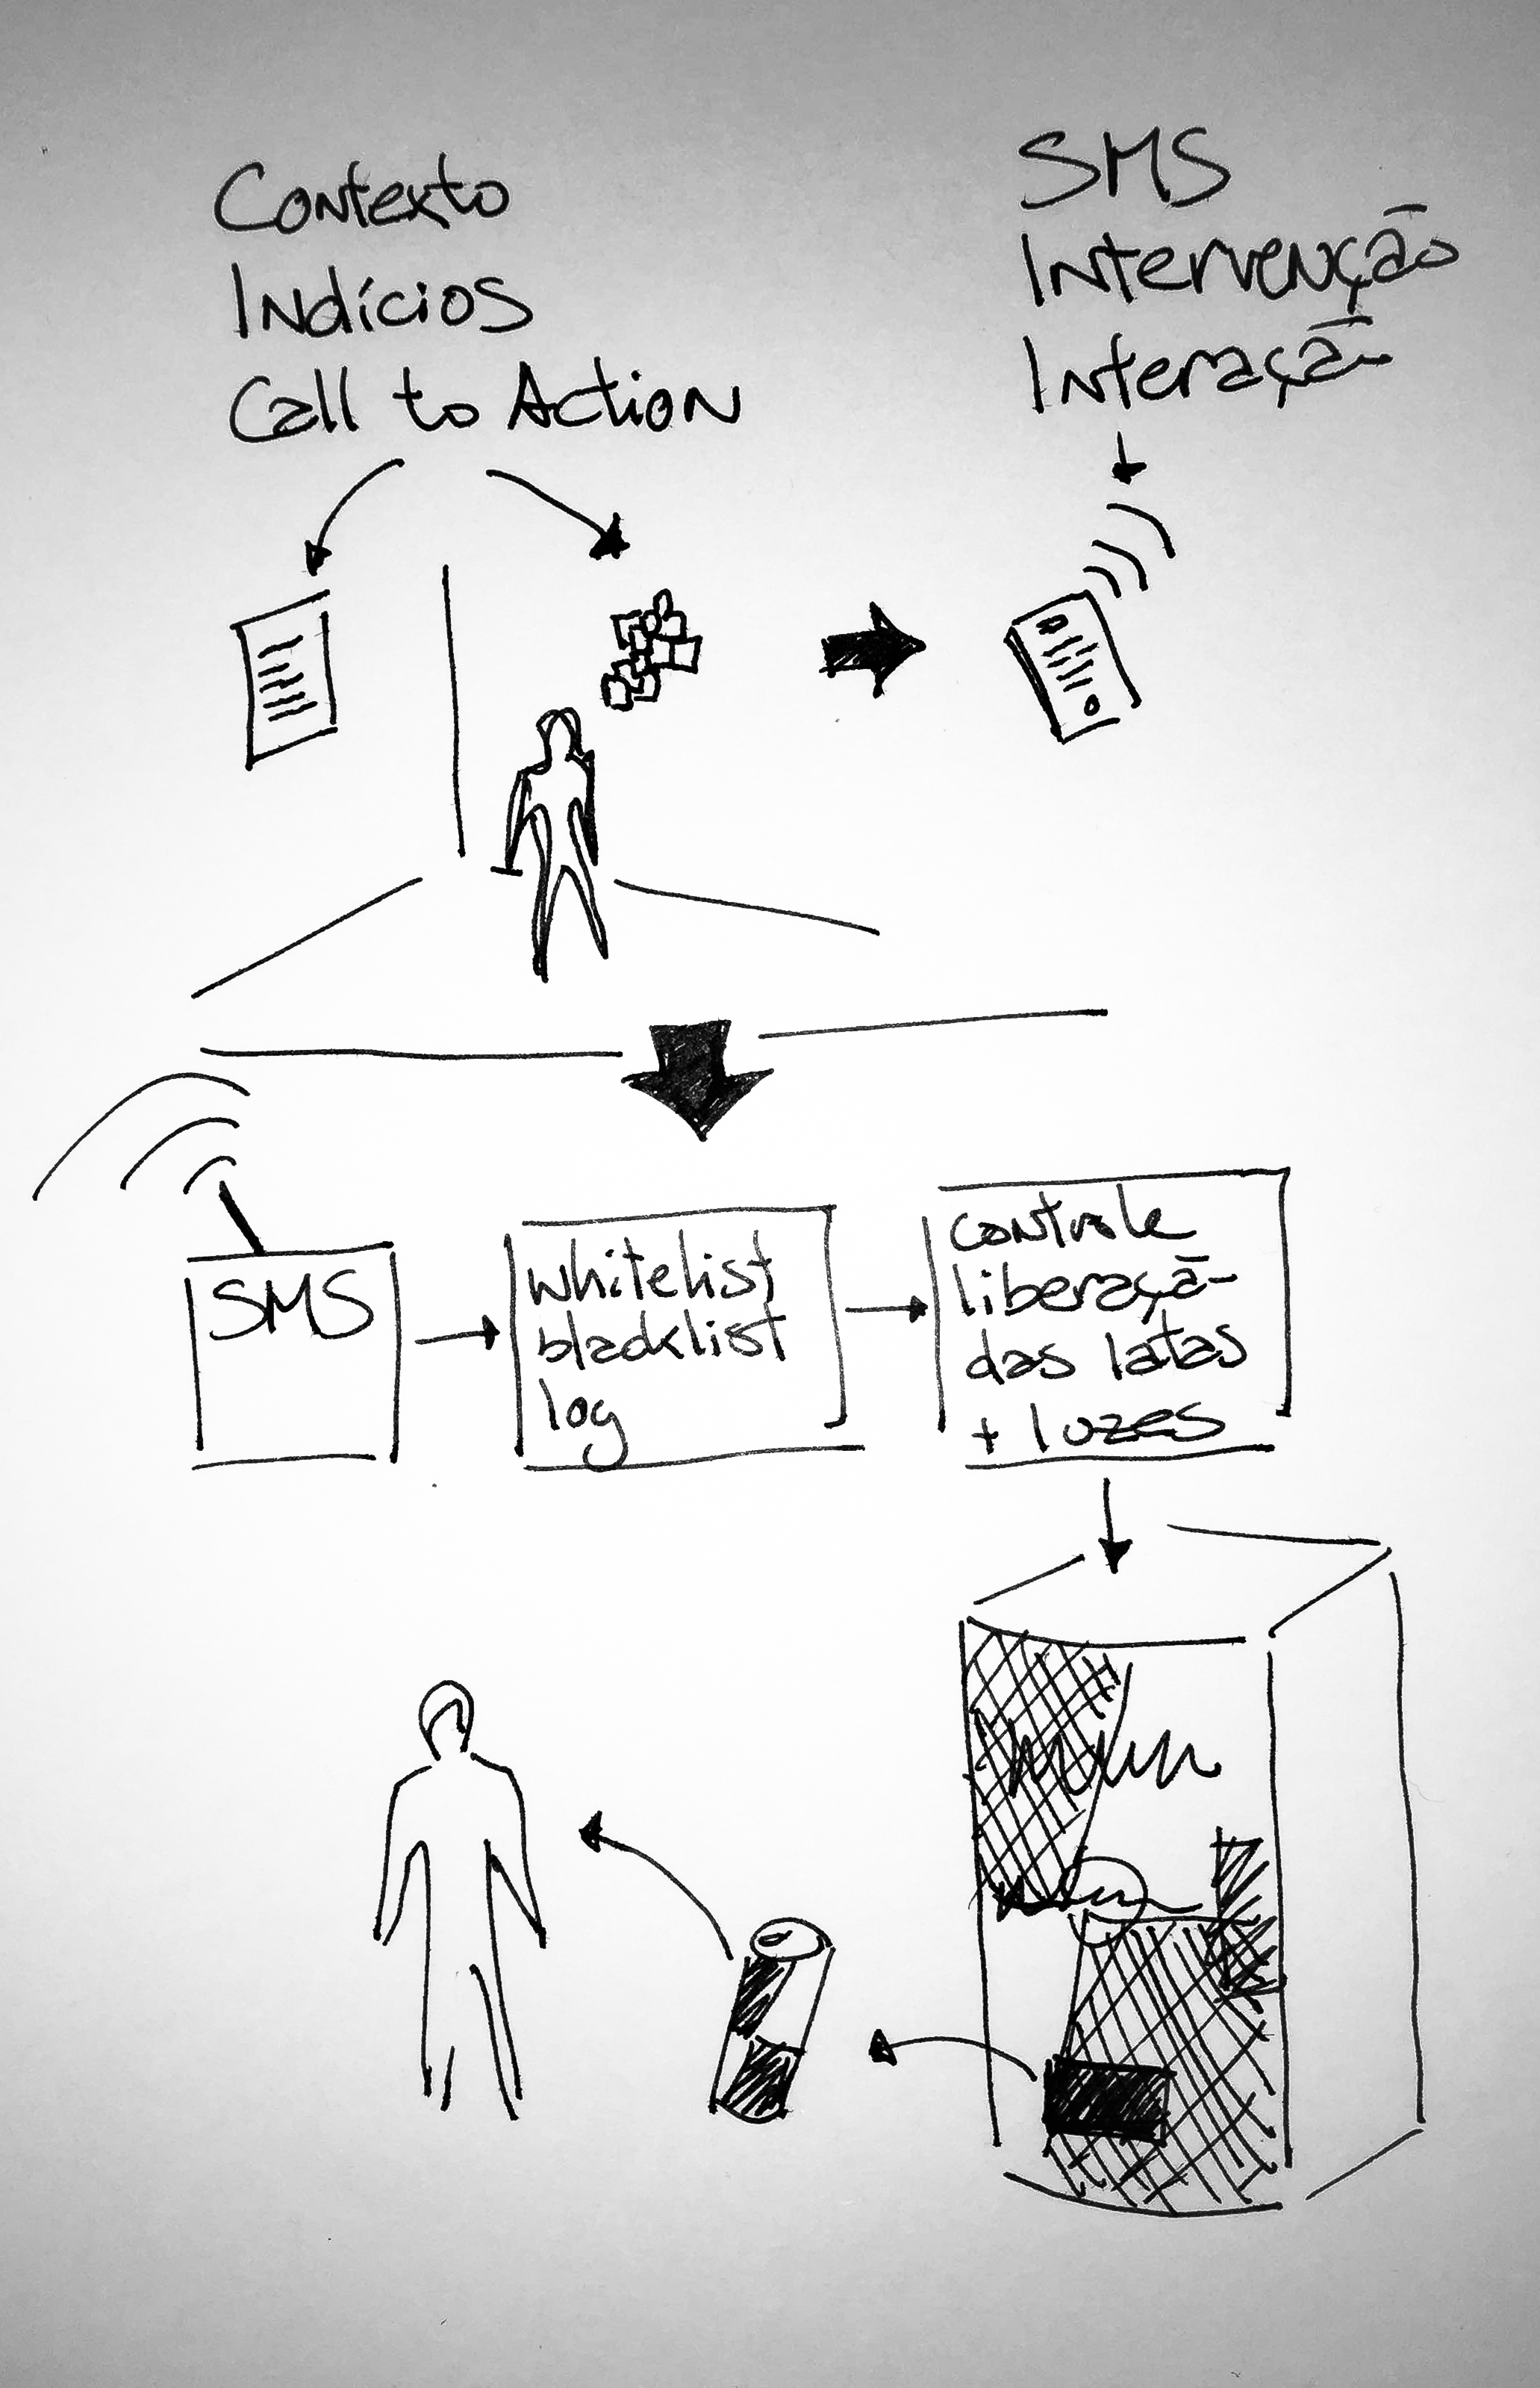 Contexto
Indícios
Call to Action
SMS
Intervenção
Interação
SMS
whitelist
blacklist
log
controle
liberação
das latas
+ luzes